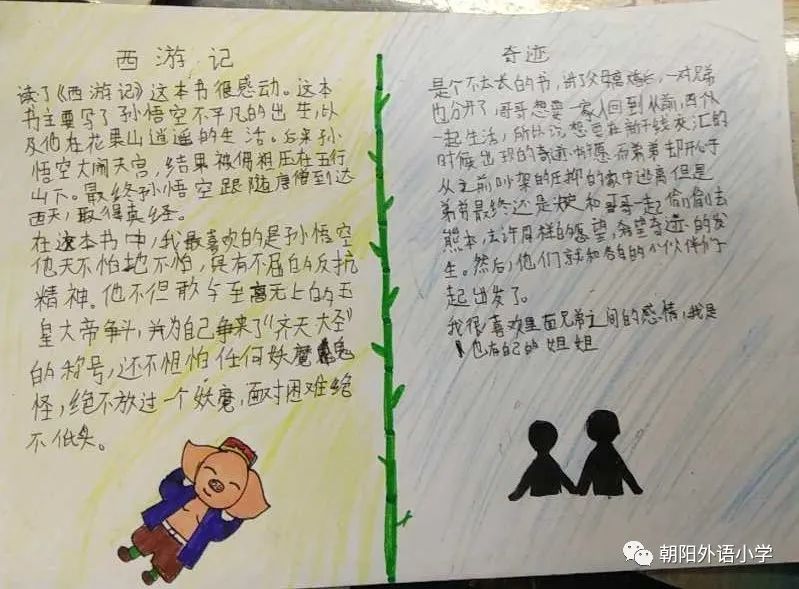 西游记
读了《西游记》这本书很感动。这本
书主要写了孙悟空不平凡的出生,以
及他在花果山逍遥的生活。后来孙
悟空大闹天宫,结果被佛祖压在五行
山下。最终孙悟空跟随唐僧到达
西天,取得真经。
在这本书中,我最喜欢的是孙悟空
他天不怕地不怕,具有不屈的反抗
精神。他不但敢与至高无上的玉
皇大帝争斗,并为自己争来了“齐天大圣”
的称号,还不怛怕任何妖魔鬼
怪,绝不放过一个妖魔,面对困难绝
不低头。
奇迹
是个不太长的书,讲了父母离婚后,一对兄弟
也分开了,哥哥想要一家人回到从前,四个人
一起生活,所以说想要在新干线交汇的
时候出现的奇迹 许愿 而弟弟却开心于
从之前吵架的压抑的家中逃离但是
弟弟最终还是决定和哥哥一起,偷偷去
熊本,去许同样的愿望,希望奇迹的发
生。然后,他们就和各自的小伙伴们一
起出发了。
我很喜欢里面兄弟之间的感情,我是
也有自己的姐姐
朝阳外语小学